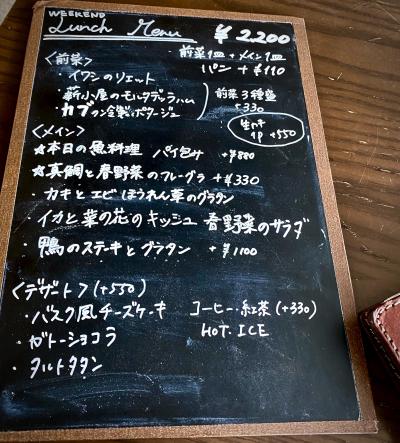 WEEKEND
Lunch Menu ¥2,200
前菜1皿+メイン1皿
パン+¥110
〈前菜〉
・イワシのリエット
・薪小屋のモルタデッラハム
・カブの ポタージュ
前菜3種盛
+330
生ハム
1P +550
〈メイン〉
★本日の魚料理 パイ包み +¥880
★真鯛と春野菜のフレーグラ +¥330
・カキとエビ ほうれん草のグラタン
・イカと菜の花のキッシュ 春野菜のサラダ
・鴨のステーキとグラタン +¥1100
〈デザート〉(+550)
・バスク風チーズケーキ
・ガトーショコラ
・タルトタタン
コーヒー・紅茶(+330)
HOT・ICE